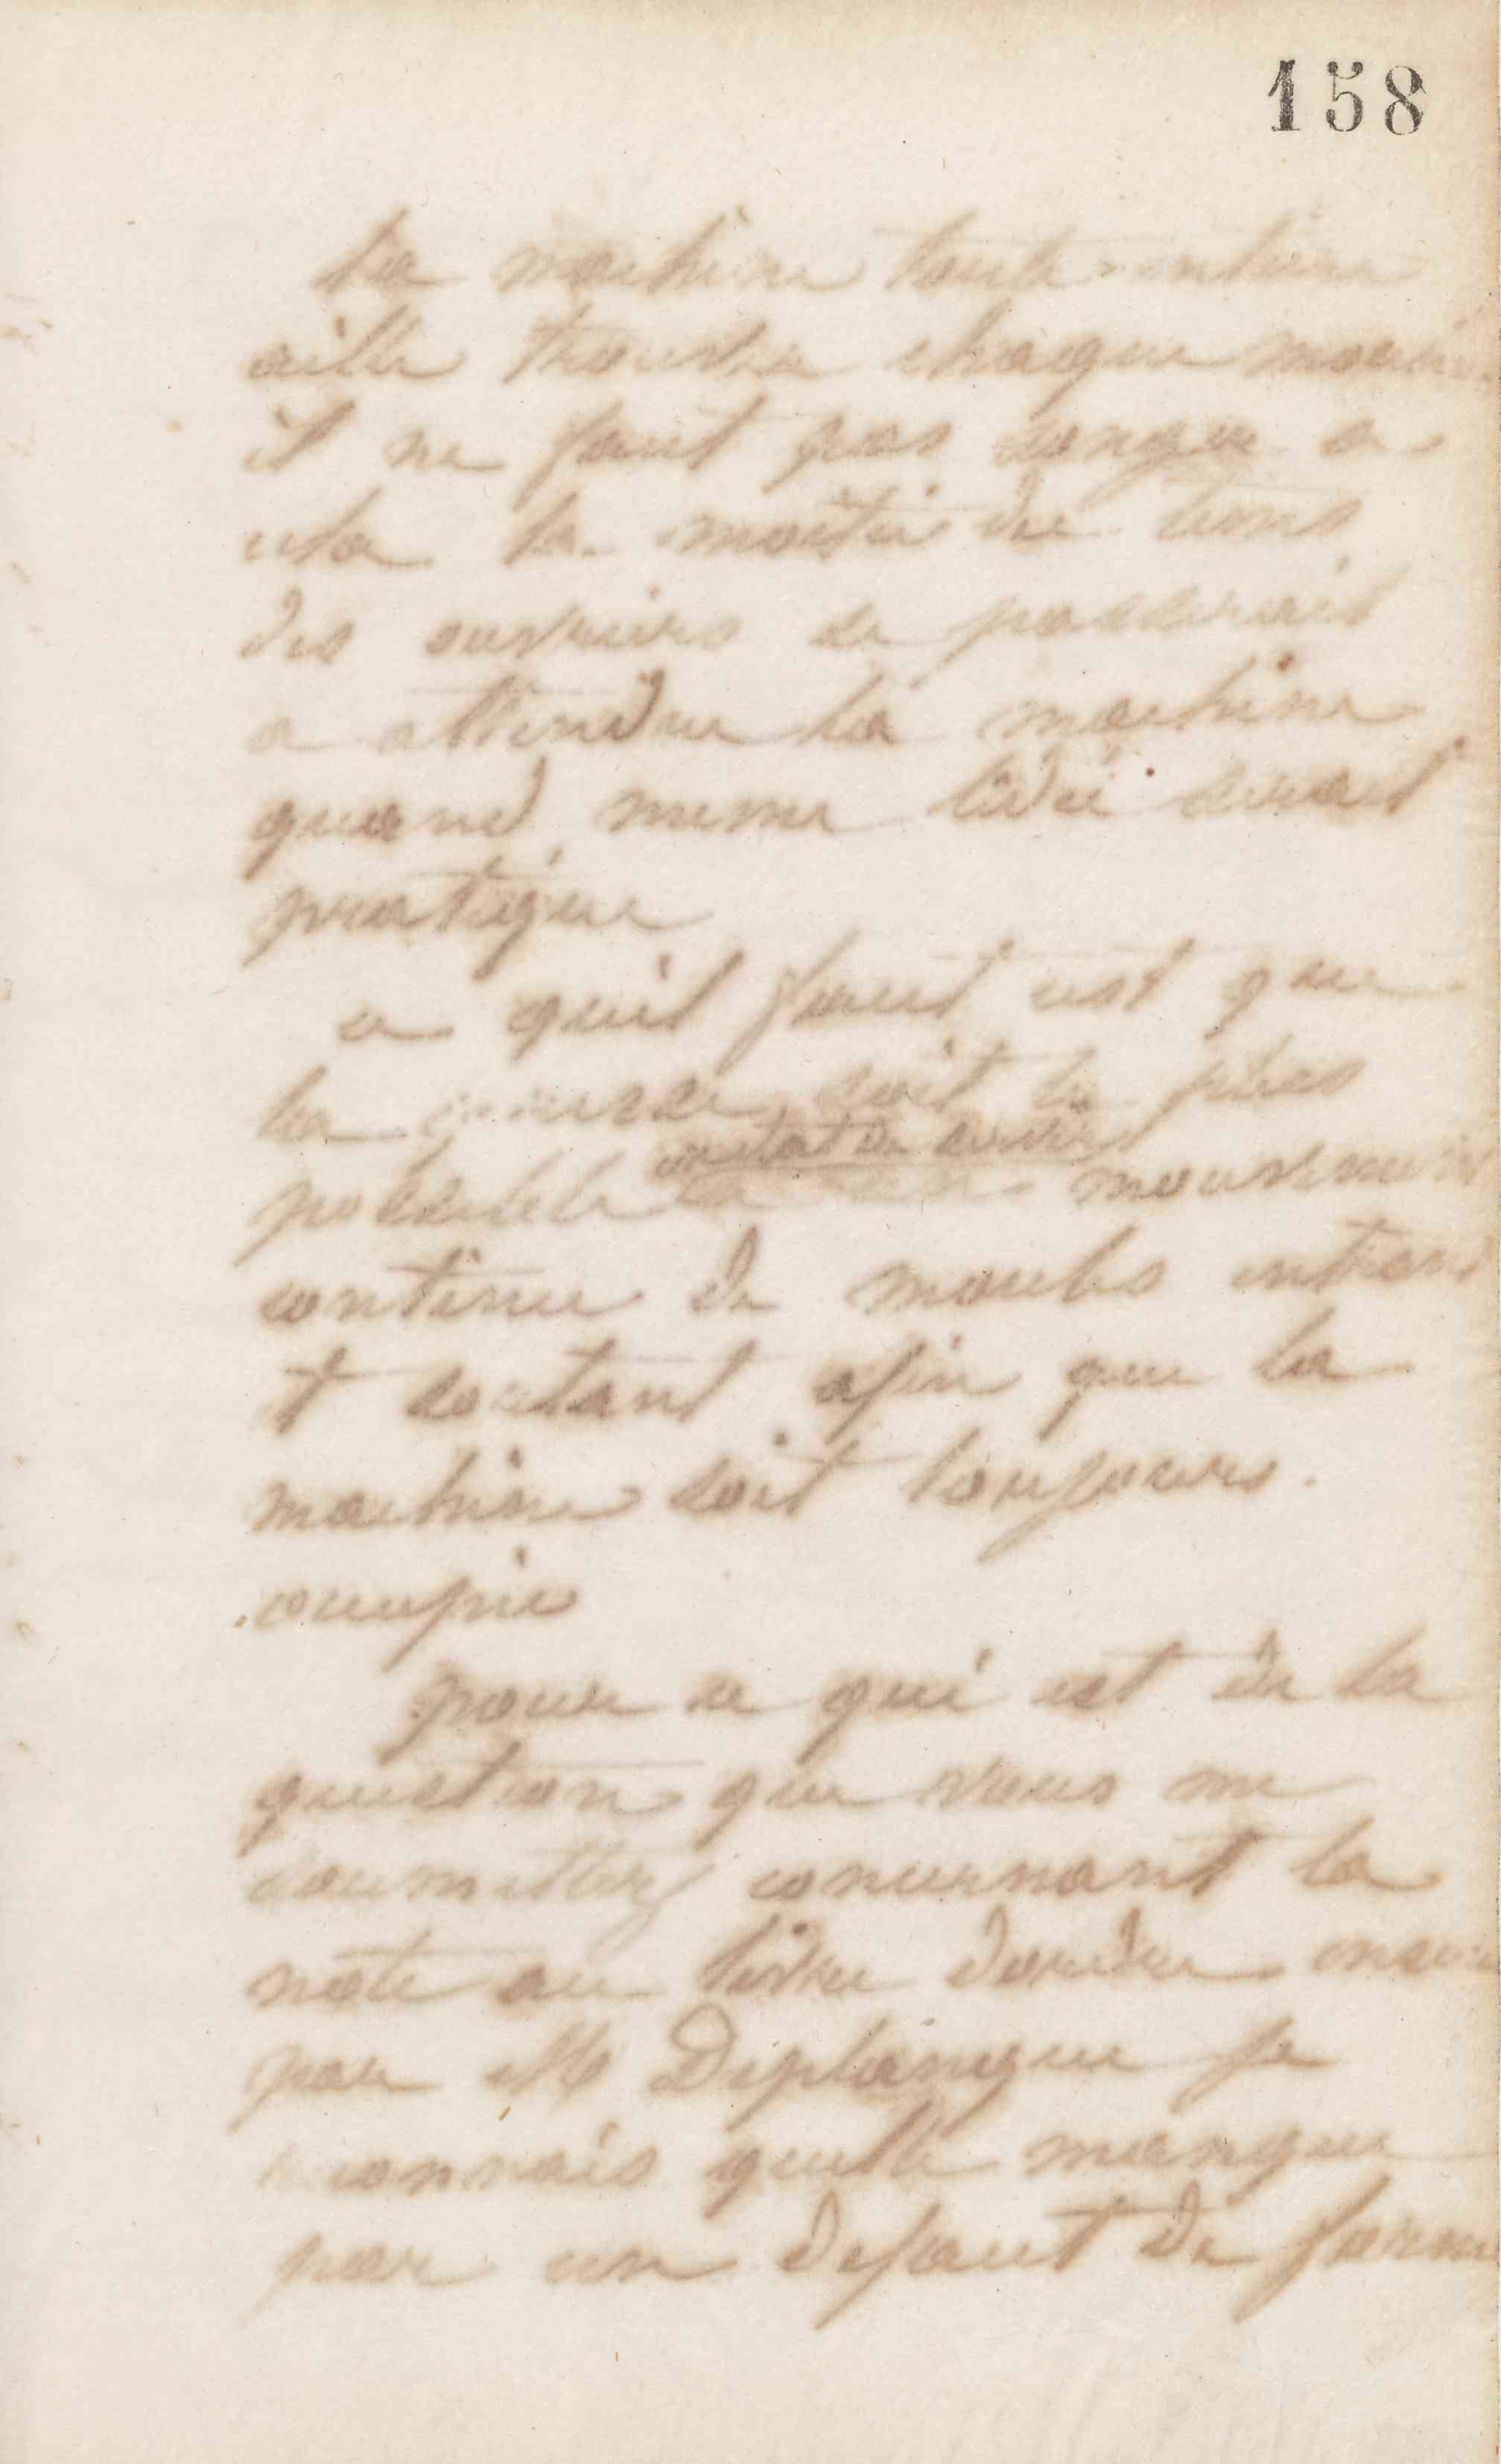 158
la machine toute entiere
aille trouver chaque moule
il ne faut pas songer a
cela la moitié du tems
des ouvriers se passerait
a attendre la machine
quand meme l'idée serait
pratique
ce quil faut cest que
la soit le plus
possible mouvement
continu de moules entrant
et sortant afin que la
machine soit toujours
occupée
pour ce qui est de la
question que vous me
soumettez concernant la
note au livre d'ordre
par M Deplanque je
reconnais quelle manque
par un defaut de forme